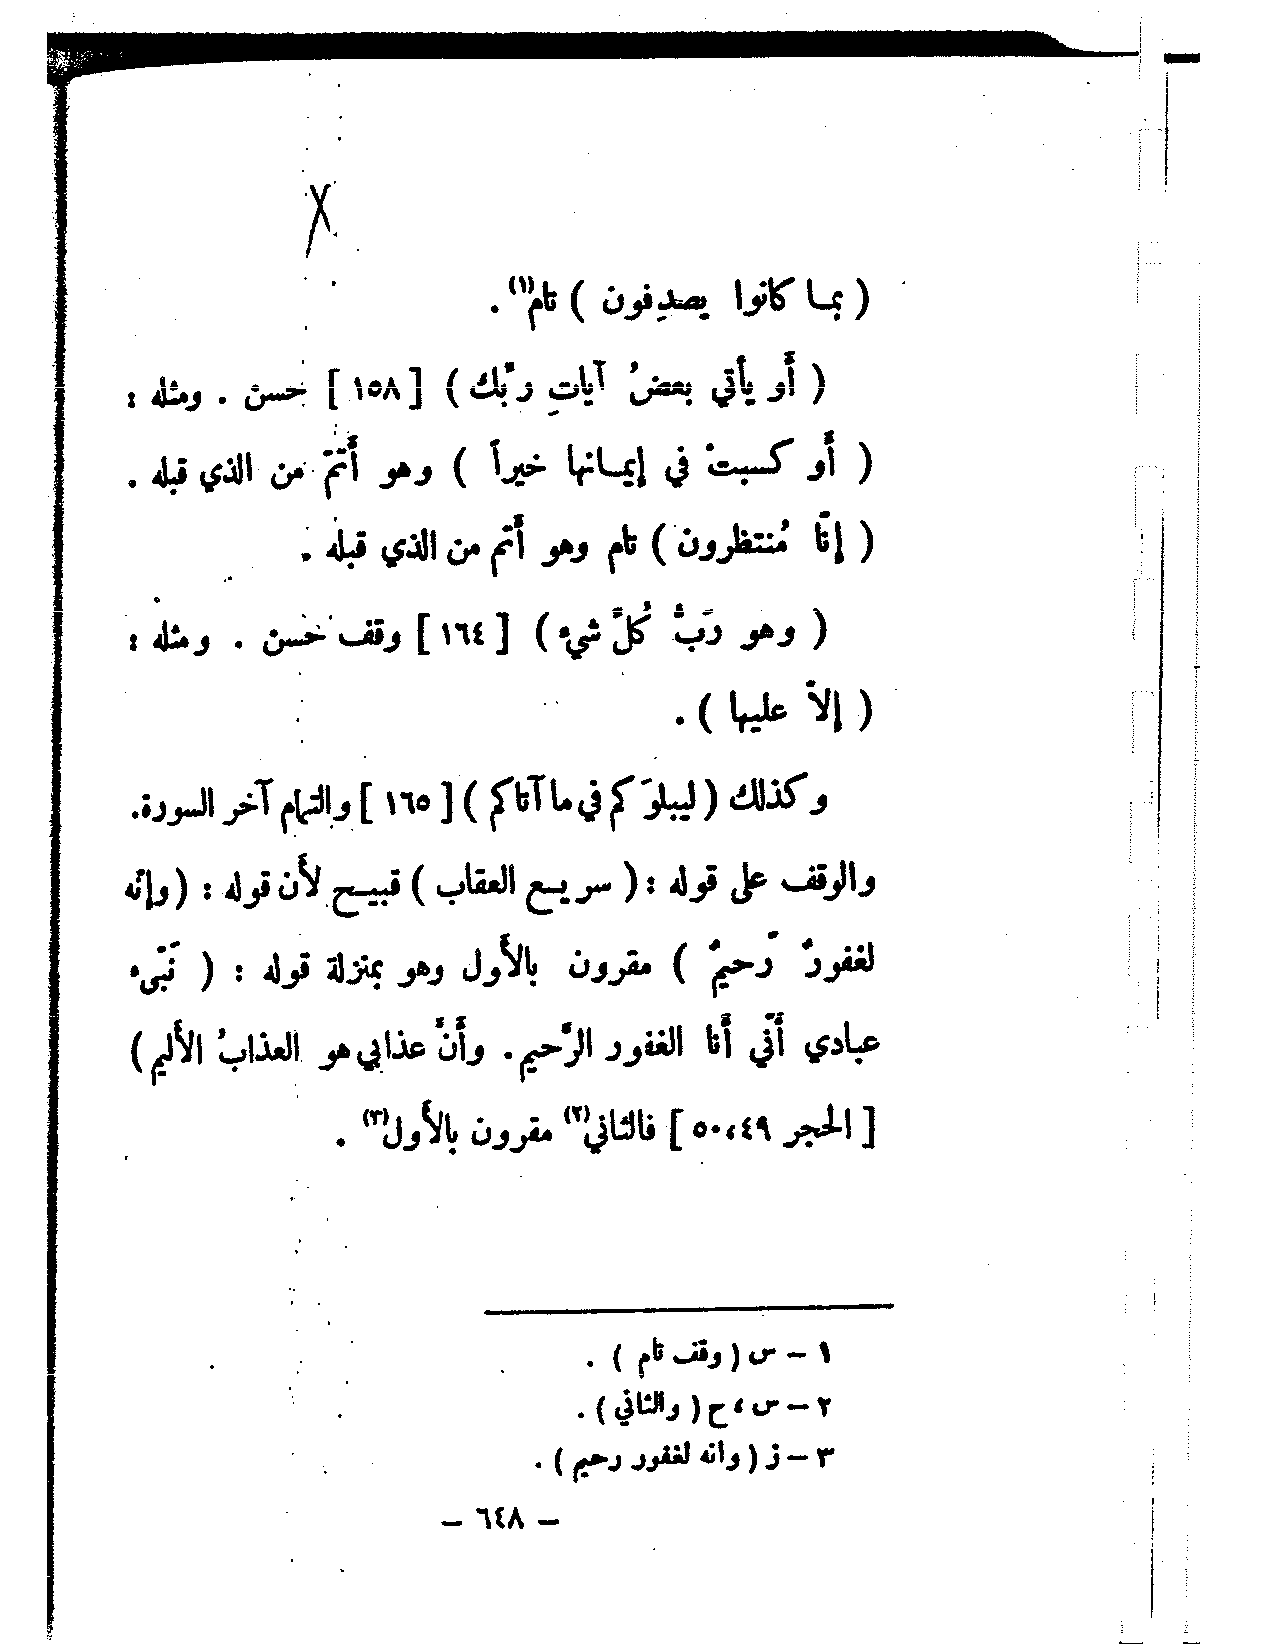 ( بمـا كانوا يصدِفون ) تام(١) .
( أَو يأتي بعضُ آياتِ ربِّك ) [ ١٥٨ ] حسن . ومثله :
( أَو كسبتْ في إيمـانها خيراً ) وهو أَتمّ من الذي قبله .
( إنّا مُنتظرون ) تام وهو أَتم من الذي قبله .
( وهو رَبُّ كُلِّ شيء ) [ ١٦٤ ] وقف حسن . ومثله :
( إلاّ عليها ) .
وكذلك ( ليبلوَكم في ما آتاكم ) [ ١٦٥ ] والتمام آخر السورة.
والوقف على قوله : ( سريـع العقاب ) قبيـح لأَن قوله : ( وإنّه
لغفورٌ رّحيمٌ ) مقرون بالأَول وهو بمنزلة قوله : ( نَبّىء
عبادي أَنّي أَنا الغفور الرَّحيم . وأَنَّ عذابي هو العذابُ الأَليم )
[ الحجر ٤٩،٥٠ ] فالثاني(٢) مقرون بالأَول(٣) .
١ – س ( وقف تام ) .
٢ – س ، ح ( والثاني ) .
٣ – ز ( وانه لغفور رحيم ) .
– ٦٤٨ –